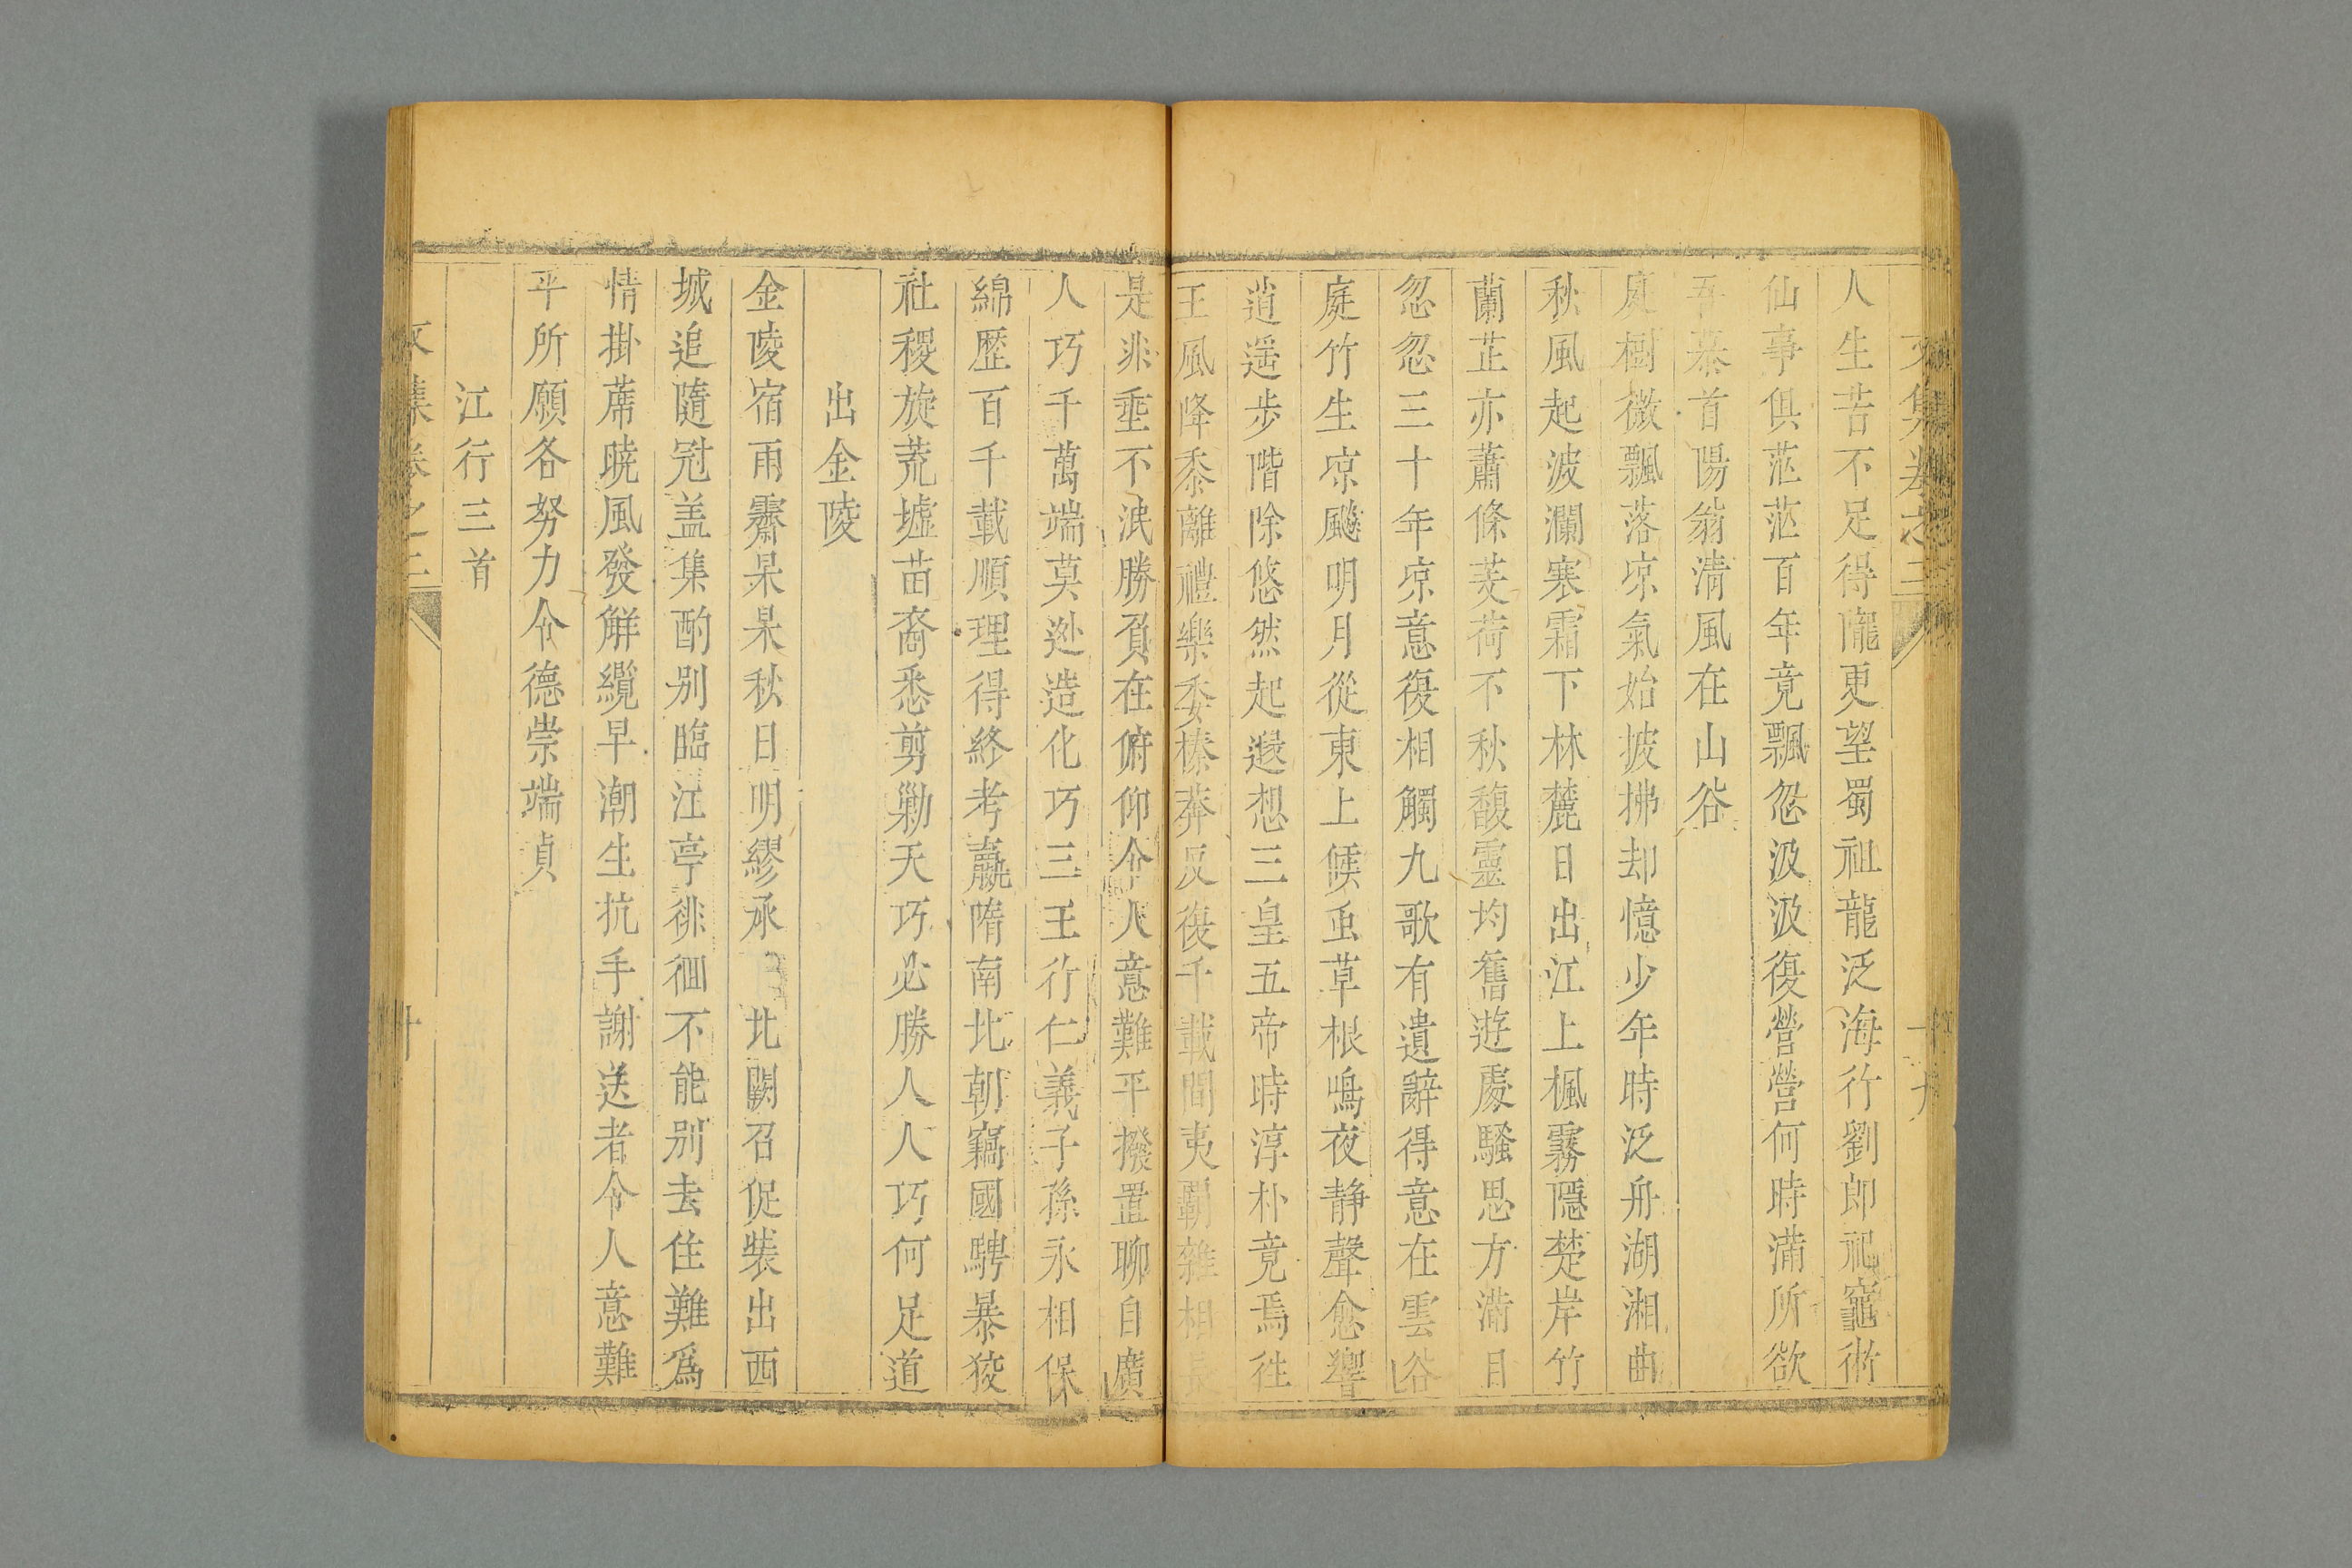 文集卷之三
人生苦不足得隴更望蜀祖龍泛海行劉郎祀竈術
仙事俱茫茫百年竟飄忽汲汲復營營何時滿所欲
吾慕首陽翁清風在山谷
庭樹微飄落凉氣始披拂却憶少年時泛舟湖湘曲
秋風起波瀾寒霜下林麓日出江上楓霧隱楚岸竹
蘭芷亦蕭條芰荷不秋馥靈均舊遊處騷思方滿目
忽忽三十年凉意復相觸九歌有遺辭得意在雲谷
庭竹生凉飈明月從東上候虫草根鳴夜静聲愈響
逍遥步階除悠然起遐想三皇五帝時淳朴竟焉徃
王風降黍離禮樂委榛莽反復千載間夷覇雜相長
是非垂不泯勝負在俯仰令人意難平撥置聊自廣
人巧千萬端莫逃造化巧三王行仁義子孫永相保
綿歷百千載順理得終考嬴隋南北朝竊國騁暴狡
社稷旋荒墟苗裔悉剪勦天巧必勝人人巧何足道
出金陵
金陵宿雨霽杲杲秋日明繆承 北闕召促裝出西
城追隨冠盖集酌别臨江亭徘徊不能别去住難爲
情掛蓆曉風發解纜早潮生抗手謝送者令人意難
平所願各努力令德崇端貞
江行三首
文集卷之三